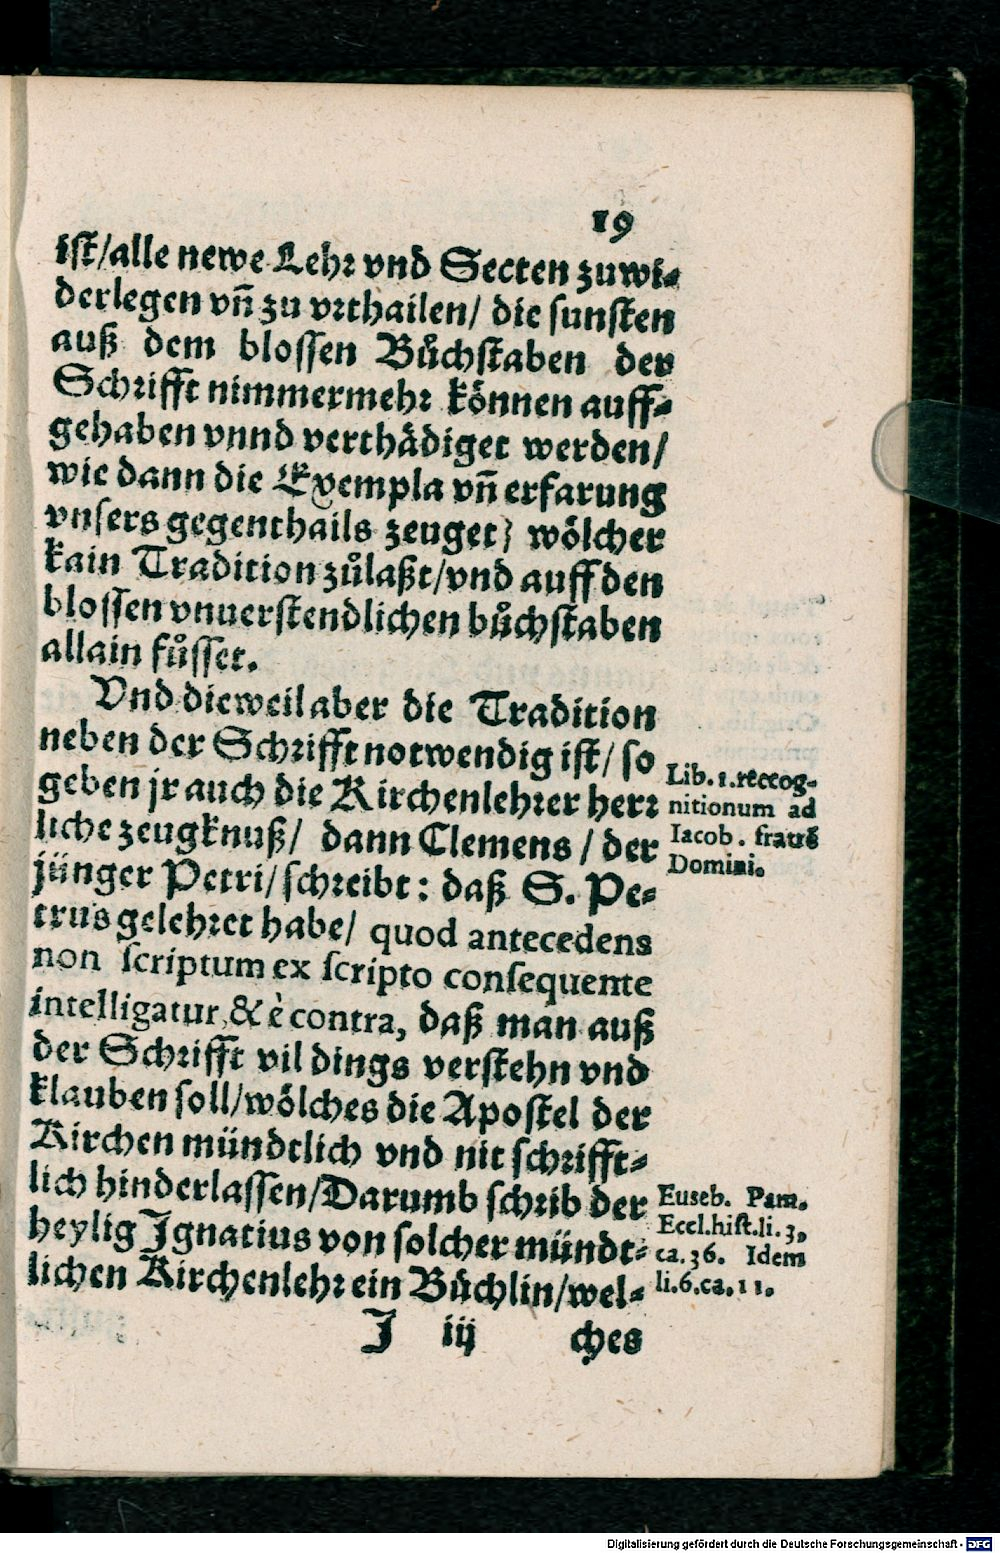 19
ist/alle newe Lehr vnd Secten zuwi-
derlegen vñ zu vrthailen/ die sunsten
auß dem blossen Bůchstaben der
Schrifft nimmermehr können auff-
gehaben vnnd verthädiget werden/
wie dann die Exempla vñ erfarung
vnsers gegenthails zeuget; wölcher
kain Tradition zůlaßt/vnd auff den
blossen vnuerstendlichen bůchstaben
allain fůsset.
Vnd dieweil aber die Tradition
neben der Schrifft notwendig ist/ so
geben jr auch die Kirchenlehrer herr
liche zeugknuß/ dann Clemens / der
jünger Petri/schreibt: daß S. Pe-
trus gelehret habe/ quod antecedens
non scriptum ex scripto consequente
intelligatur, & è contra, daß man auß
der Schrifft vil dings verstehn vnd
klauben soll/wölches die Apostel der
Kirchen mündtlich vnd nit schrifft-
lich hinderlassen/Darumb schrib der
heylig Ignatius von solcher mündt-
lichen Kirchenlehr ein Bůchlin/wel-
J iij ches
Lib. 1. recog-
nitionum ad
Iacob. fratrē
Domini.
Euseb. Pam.
Eccl.hist.li.3,
ca.36. Idem
li.6.ca.11.
Digitalisierung gefördert durch die Deutsche Forschungsgemeinschaft - DFG